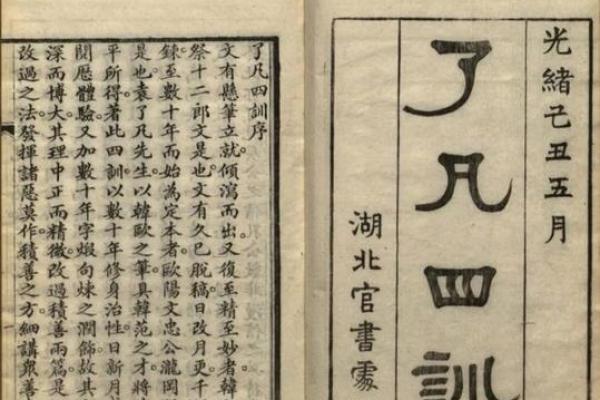 光緒己丑五月
了凡四訓
湖北官書處
了凡四訓序
文有懸筆立就。傾瀉而出。又復至精至妙者。韓
祭十二郎文是也。文有久已脫稿。日改月更。千
鍊至數十年。而始為定本者。歐陽文忠公瀧岡
是也。袁了凡先生。以韓歐之筆。具韓范之才。將
平所得。著此四訓。以數十年修身治性。日新月
閱歷體驗。又加數十年字煅句煉之潤飾。故其
深而博大。其理中正而精微。改過積善兩篇。是
改過之法。發揮諸惡莫作。積善之方。細講眾善